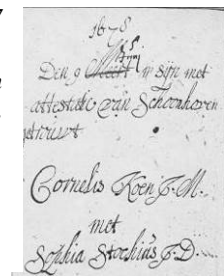 1678
Den 9 Meert in sijn met
attestatie van Schoonhoven
getrouwt
Cornelis Koen J.M.
met
Sophia Stochius J.D.